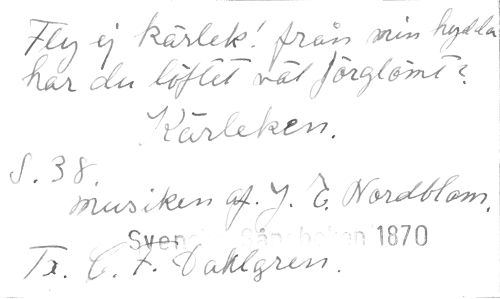 Fly ej kärlek! från min hydda
har du löftet väl förglömt?
Kärleken.
S. 38.
musiken af J. E. Nordblom.
Svenska Sångboken 1870
Tx. C. F. Dahlgren.